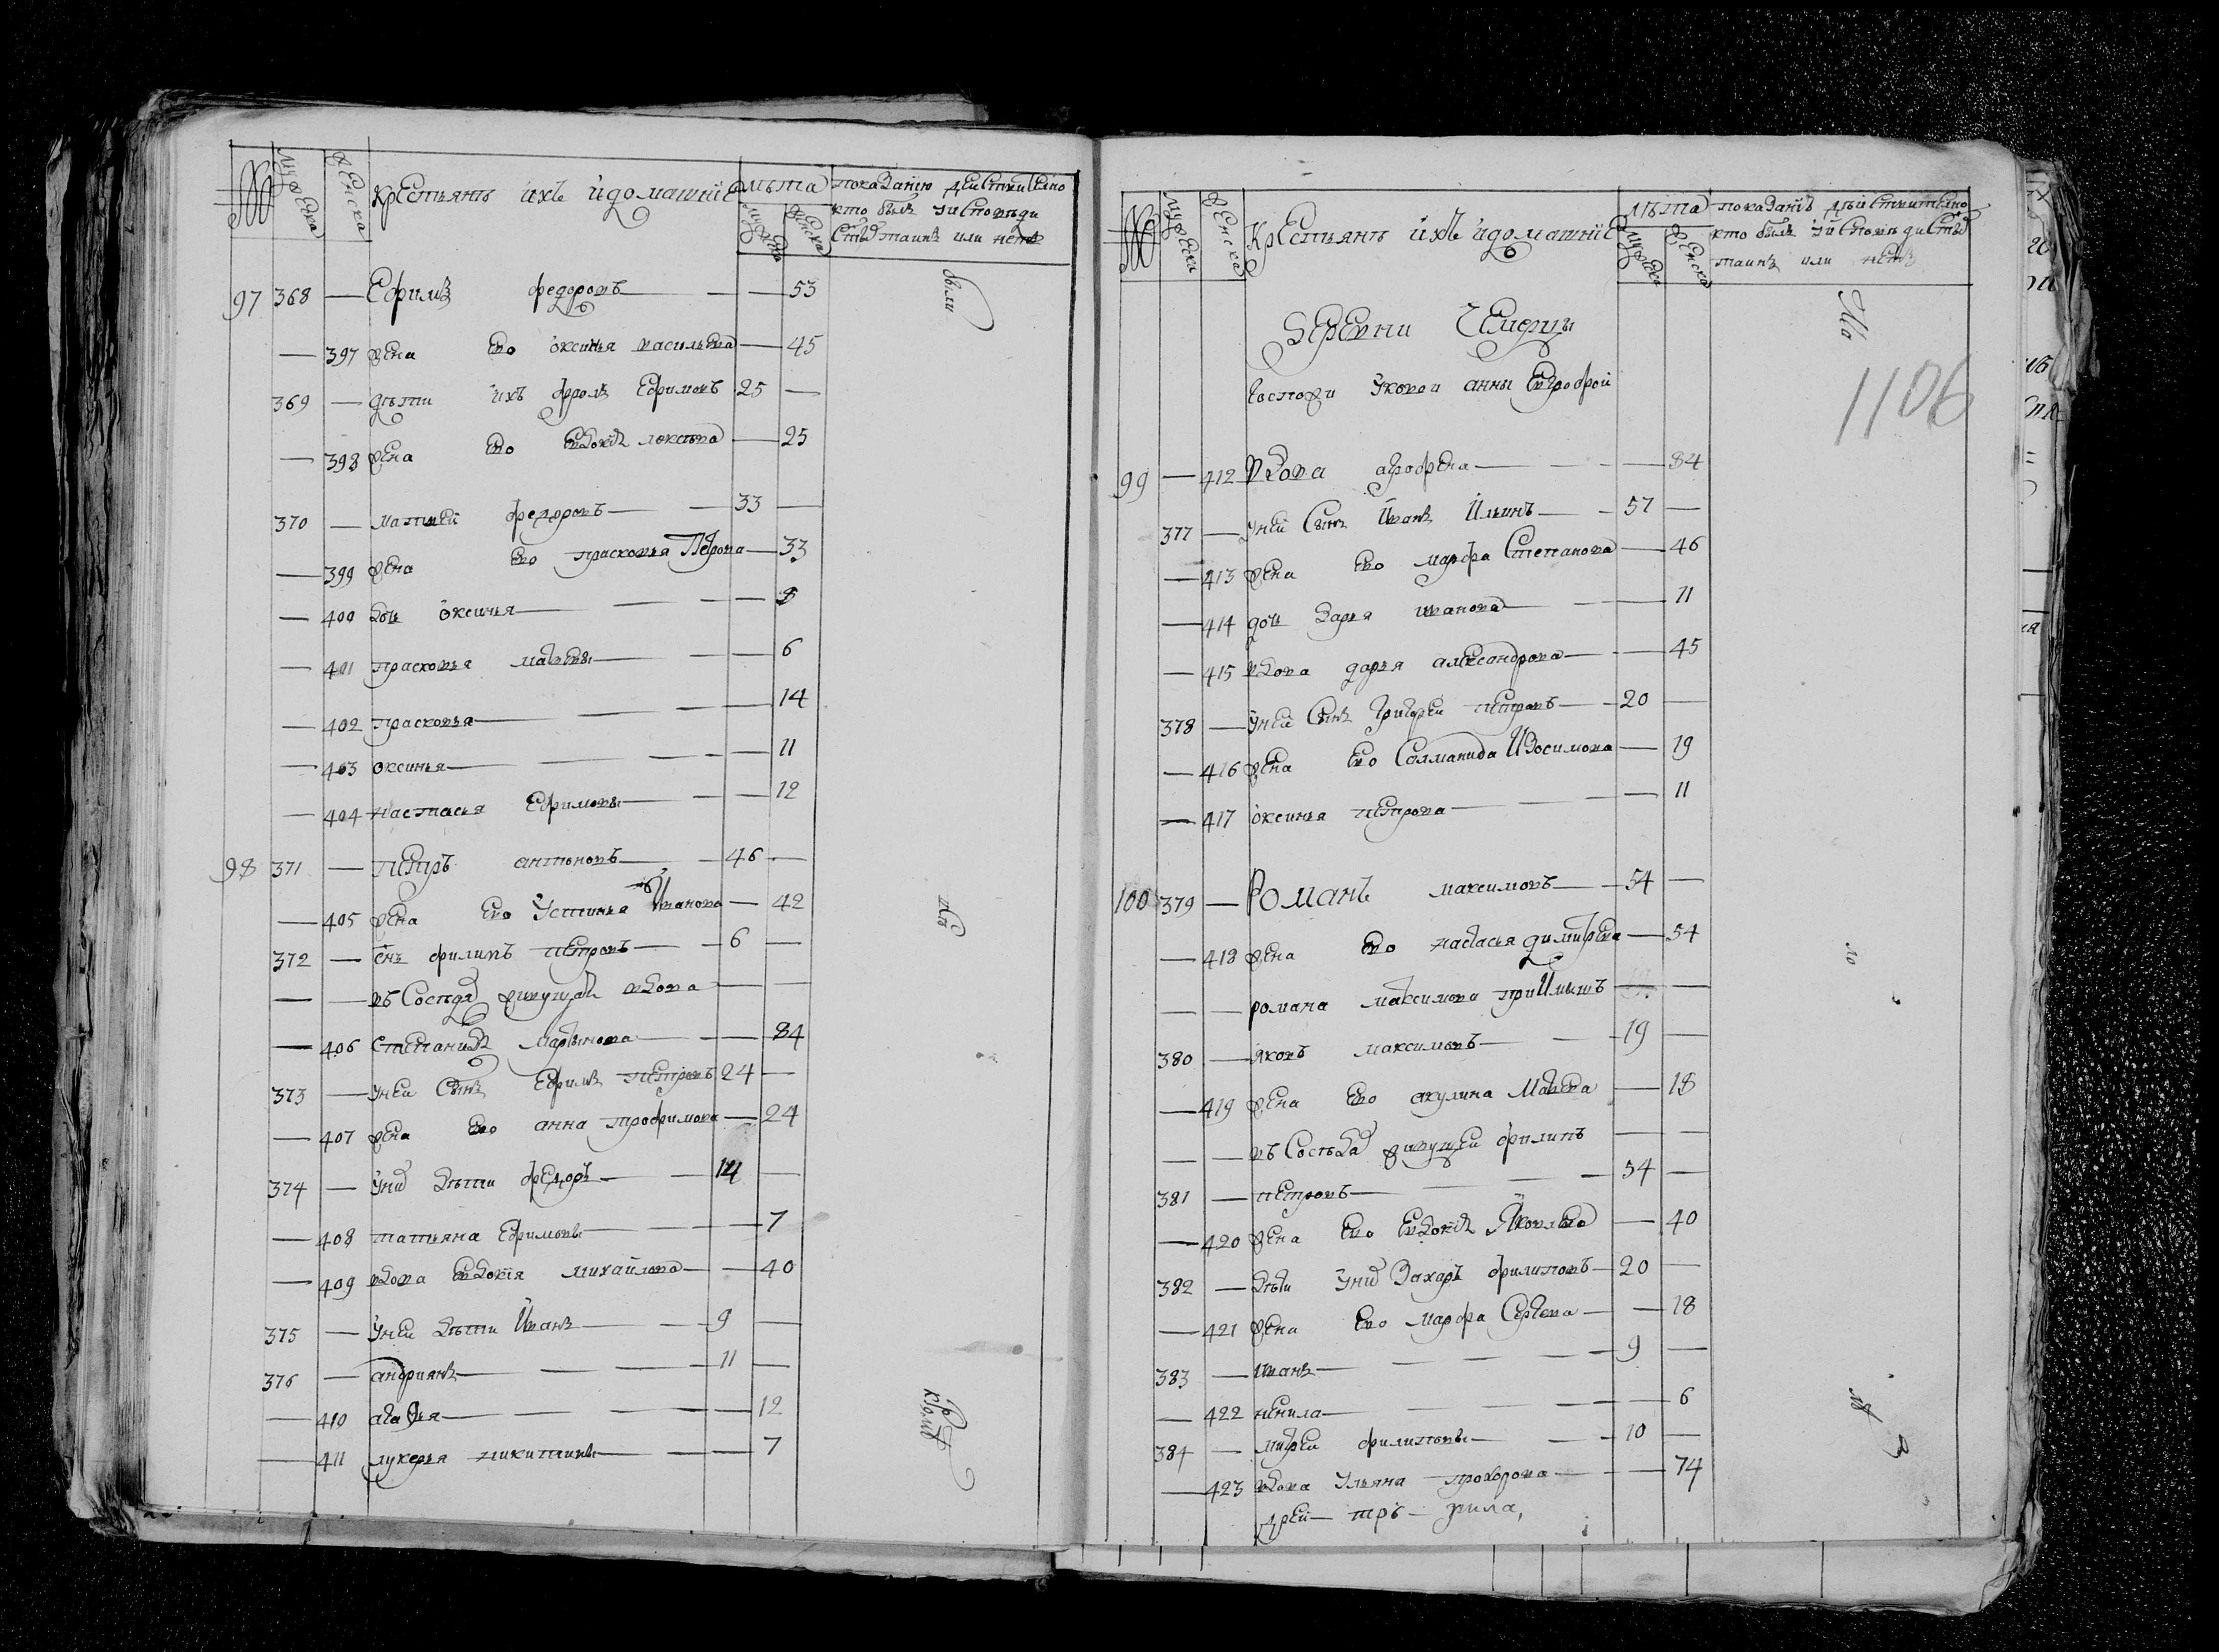 № мужеска женска крестьянъ ихъ и домашние лѣта показанию действително
мужеска женска кто былъ у исповѣди
Стыхъ таинъ или нетъ
97 368 — Ефимъ федоровъ — — 53
были
— 397 жена ево оксинья васильева — 45
369 — дѣти ихъ фролъ Ефимовъ 25 —
— 398 жена ево Евдокия — 25
370 — матвей федоровъ — 33 —
— 399 жена ево прасковья Петрова — 33
— 400 дочь оксинья — — 8
— 401 прасковья матвевы — — 6
— 402 прасковья — — 14
— 403 оксинья — — 11
— 404 настасья Ефимовы — — 12
98 371 — Петръ антоновъ — 46 —
— 405 жена ево Устинья Иванова — 42
372 — снъ филипъ петровъ — 6 —
— — въ Соседѣ живущая вдова — —
— 406 степанида Мартынова — — 84
373 — у неи Сынъ Ефимъ петровъ 24 —
— 407 жена ево анна трофимова — 24
374 — у них дѣти федоръ — 14 —
— 408 татьяна Ефимовы — — 7
— 409 вдова Евдокия михайлова — — 40
375 — у неи дѣти Иванъ — 9 —
376 — андриянъ — 11 —
— 410 агафья — — 12
— 411 лукерья никитины — — 7
№ мужеска женска Крестьянъ ихъ и домашние лѣта показание дѣйствително
мужеска женска кто былъ у исповѣди Стыхъ
таинъ или нетъ
1106
Деревни
Госпожи Уковои анны
99 — 412 Вдова агрофена — — 84
377 — у ней Сынъ Иванъ Ильинъ — 57 —
— 413 жена ево марфа Степанова — 46
— 414 дочь дарья иванова — — 11
— 415 вдова дарья александрова — — 45
378 — у ней Сынъ Григореи петровъ — 20 —
— 416 жена ево Саламанида Изосимова — 19
— 417 оксинья петрова — — 11
100 379 — Романъ максимовъ — 54 —
— 418 жена ево настасья димитрева — 54
— — романа максимова приИмышъ —
380 — яковъ максимовъ — 19 —
— 419 жена ево акулина Матвева — 18
— — въ Соседа живущеи филипъ — —
381 — петровъ — 54 —
— 420 жена ево Евдокия Яковлева — 40
382 — дѣти у них Захаръ филиповъ — 20 —
— 421 жена ево марфа Сергева — — 18
383 — иванъ — 9 —
— 422 ненила — — 6
384 — филиповы — 10 —
— 423 вдова Ульяна прохорова — — 74